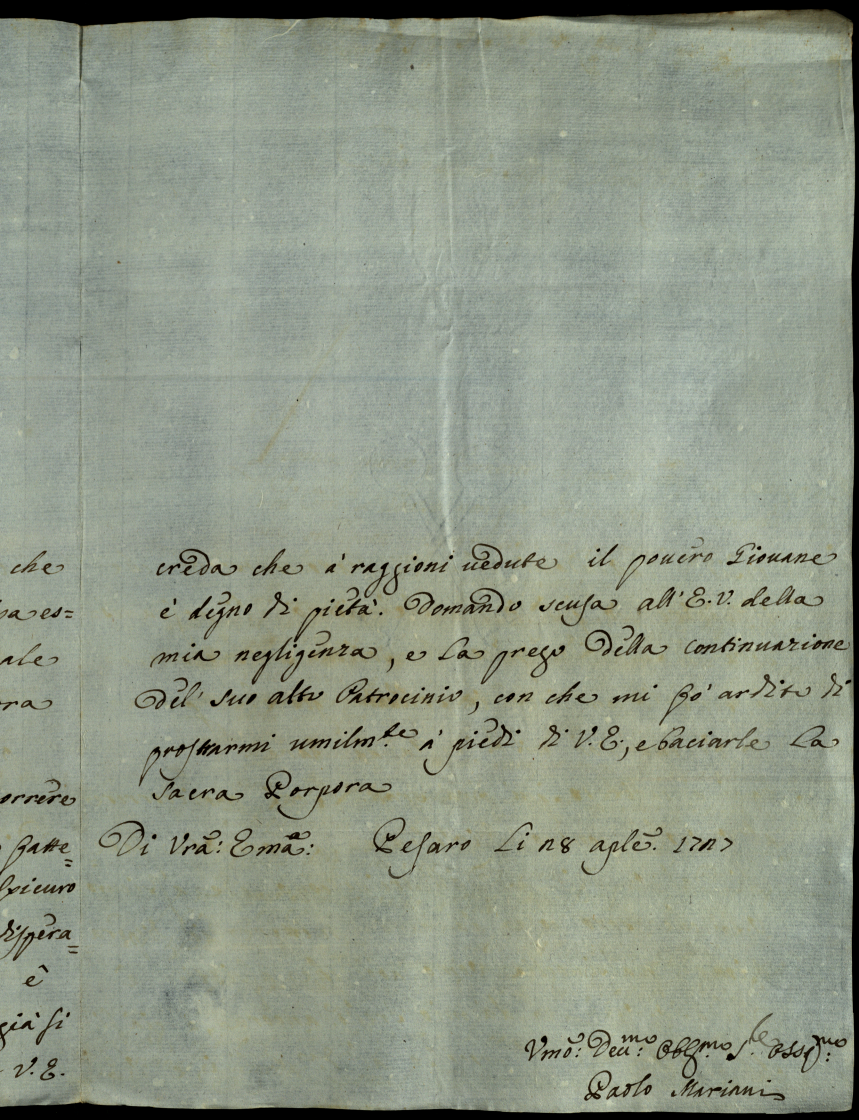 che
pa es=
ale
ora
orrere
fatte=
spicuro
dispera=
è
già si
V. E.
creda che à raggioni uedute il pouero Giouane
è degno di pietà. Domando scusa all' E. V. della
mia negligenza, e la prego della continuazione
del' suo alto Patrocinio, con che mi fò ardito di
prostrarmi umilm.te à piedi di V. E., e baciarle la
sacra Porpora
Di Vrã: Emã: Pesaro li 28 aplẽ. 1727
Vmõ: Deu.mo: Obbl.mo S.re Osseq.mo:
Paolo Mariani